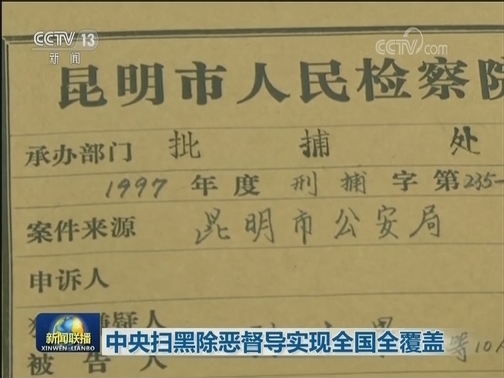 CCTV 13
新闻
CCTV.com
昆明市人民检察院
承办部门 批 捕 处
1997 年度 刑 捕 字 第 235-
案件来源 昆明市公安局
申诉人
新闻联播
XINWEN LIANBO
中央扫黑除恶督导实现全国全覆盖
被告人 等10人